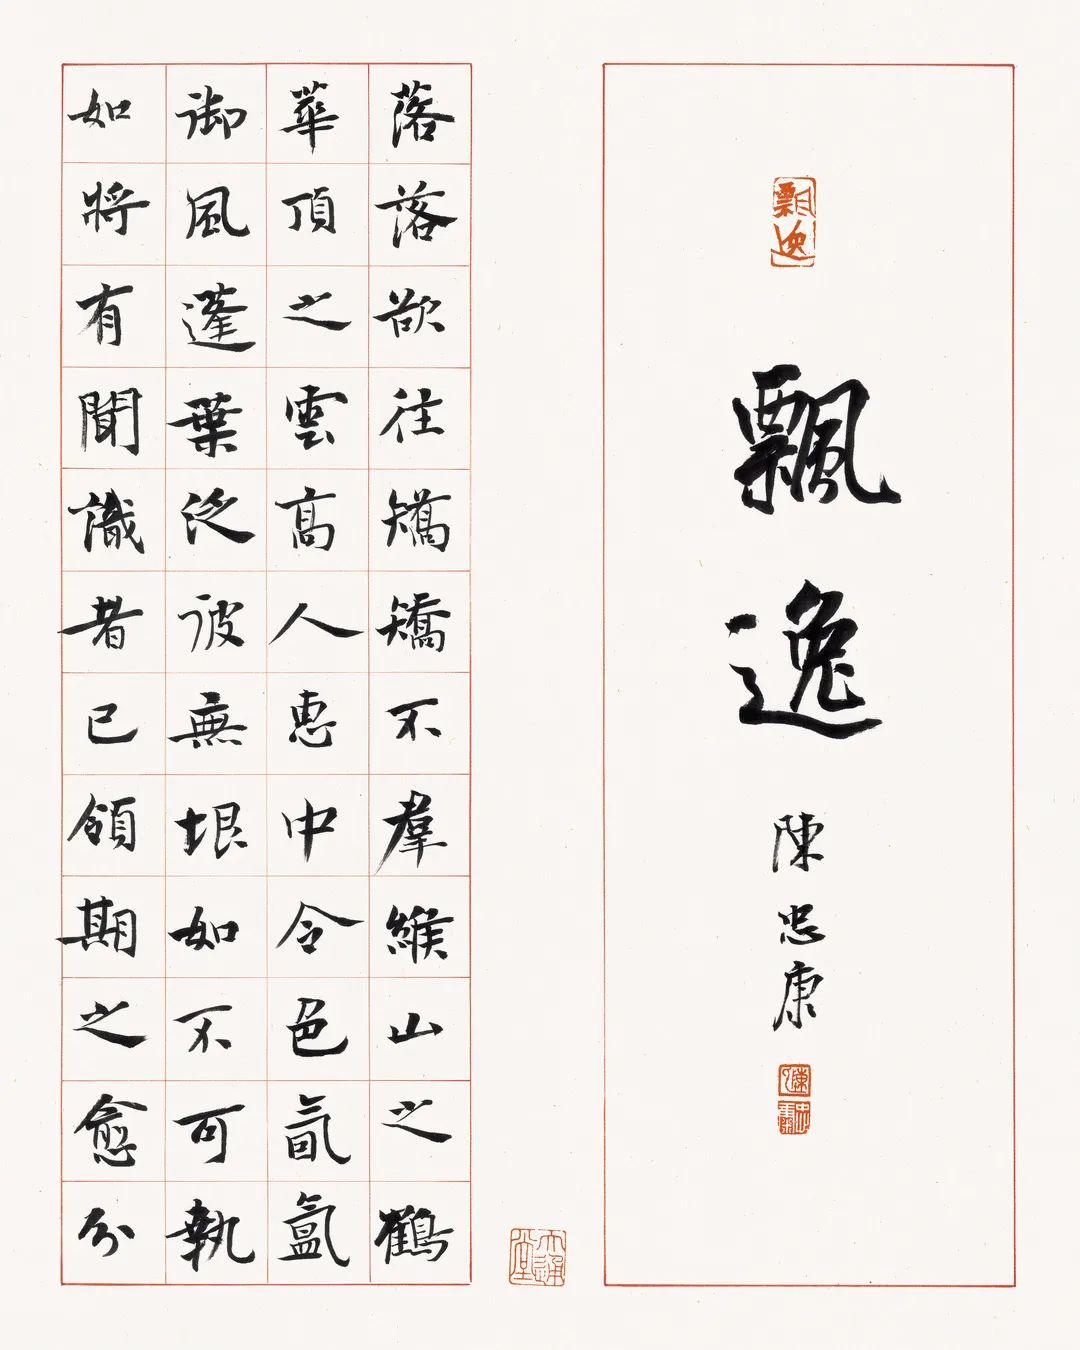 飄逸
飄逸
陳忠康
陳忠康
落落欲往矯矯不羣緱山之鶴
華頂之雲高人惠中令色氤氳
御風蓬葉泛彼無垠如不可執
如將有聞識者已領期之愈分